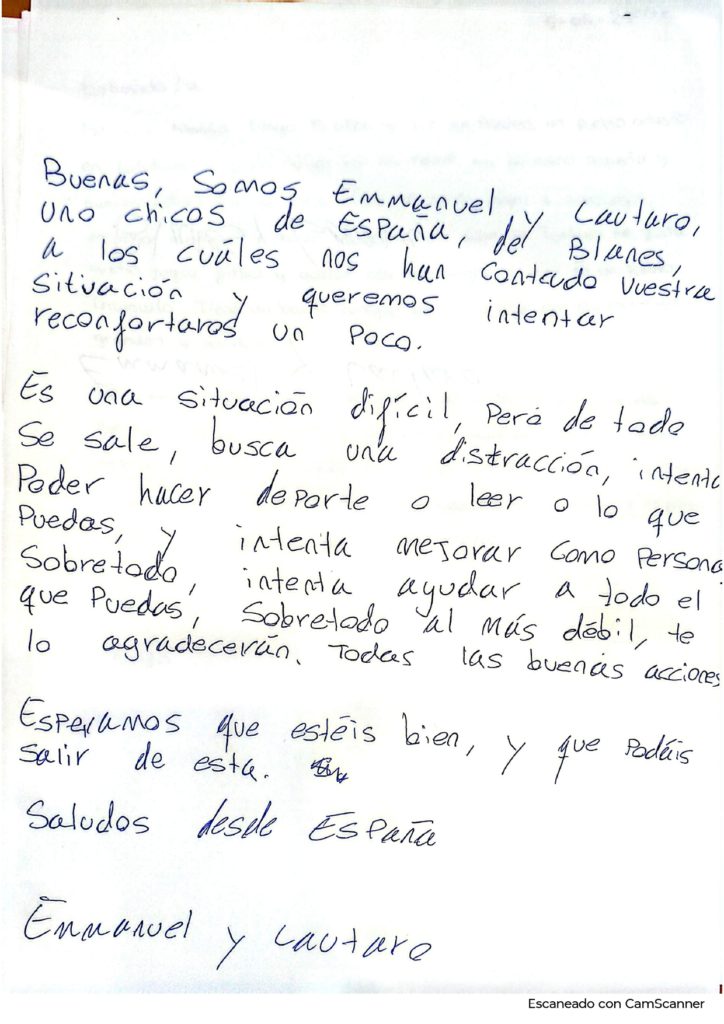 Buenas, Somos Emmanuel y Lautaro,
uno chicos de España, de Blanes,
a los cuáles nos han contado vuestra
situación y queremos intentar
reconfortaros un poco.
Es una situación difícil, pero de todo
se sale, busca una distracción, intenta
Poder hacer deporte o leer o lo que
Puedas, y intenta mejorar como persona
Sobretodo, intenta ayudar a todo el
que Puedas, sobretodo al más débil, te
lo agradecerán. Todas las buenas acciones
Esperamos que estéis bien, y que podáis
salir de esta.
Saludos desde España
Emmanuel y Lautaro
Escaneado con CamScanner